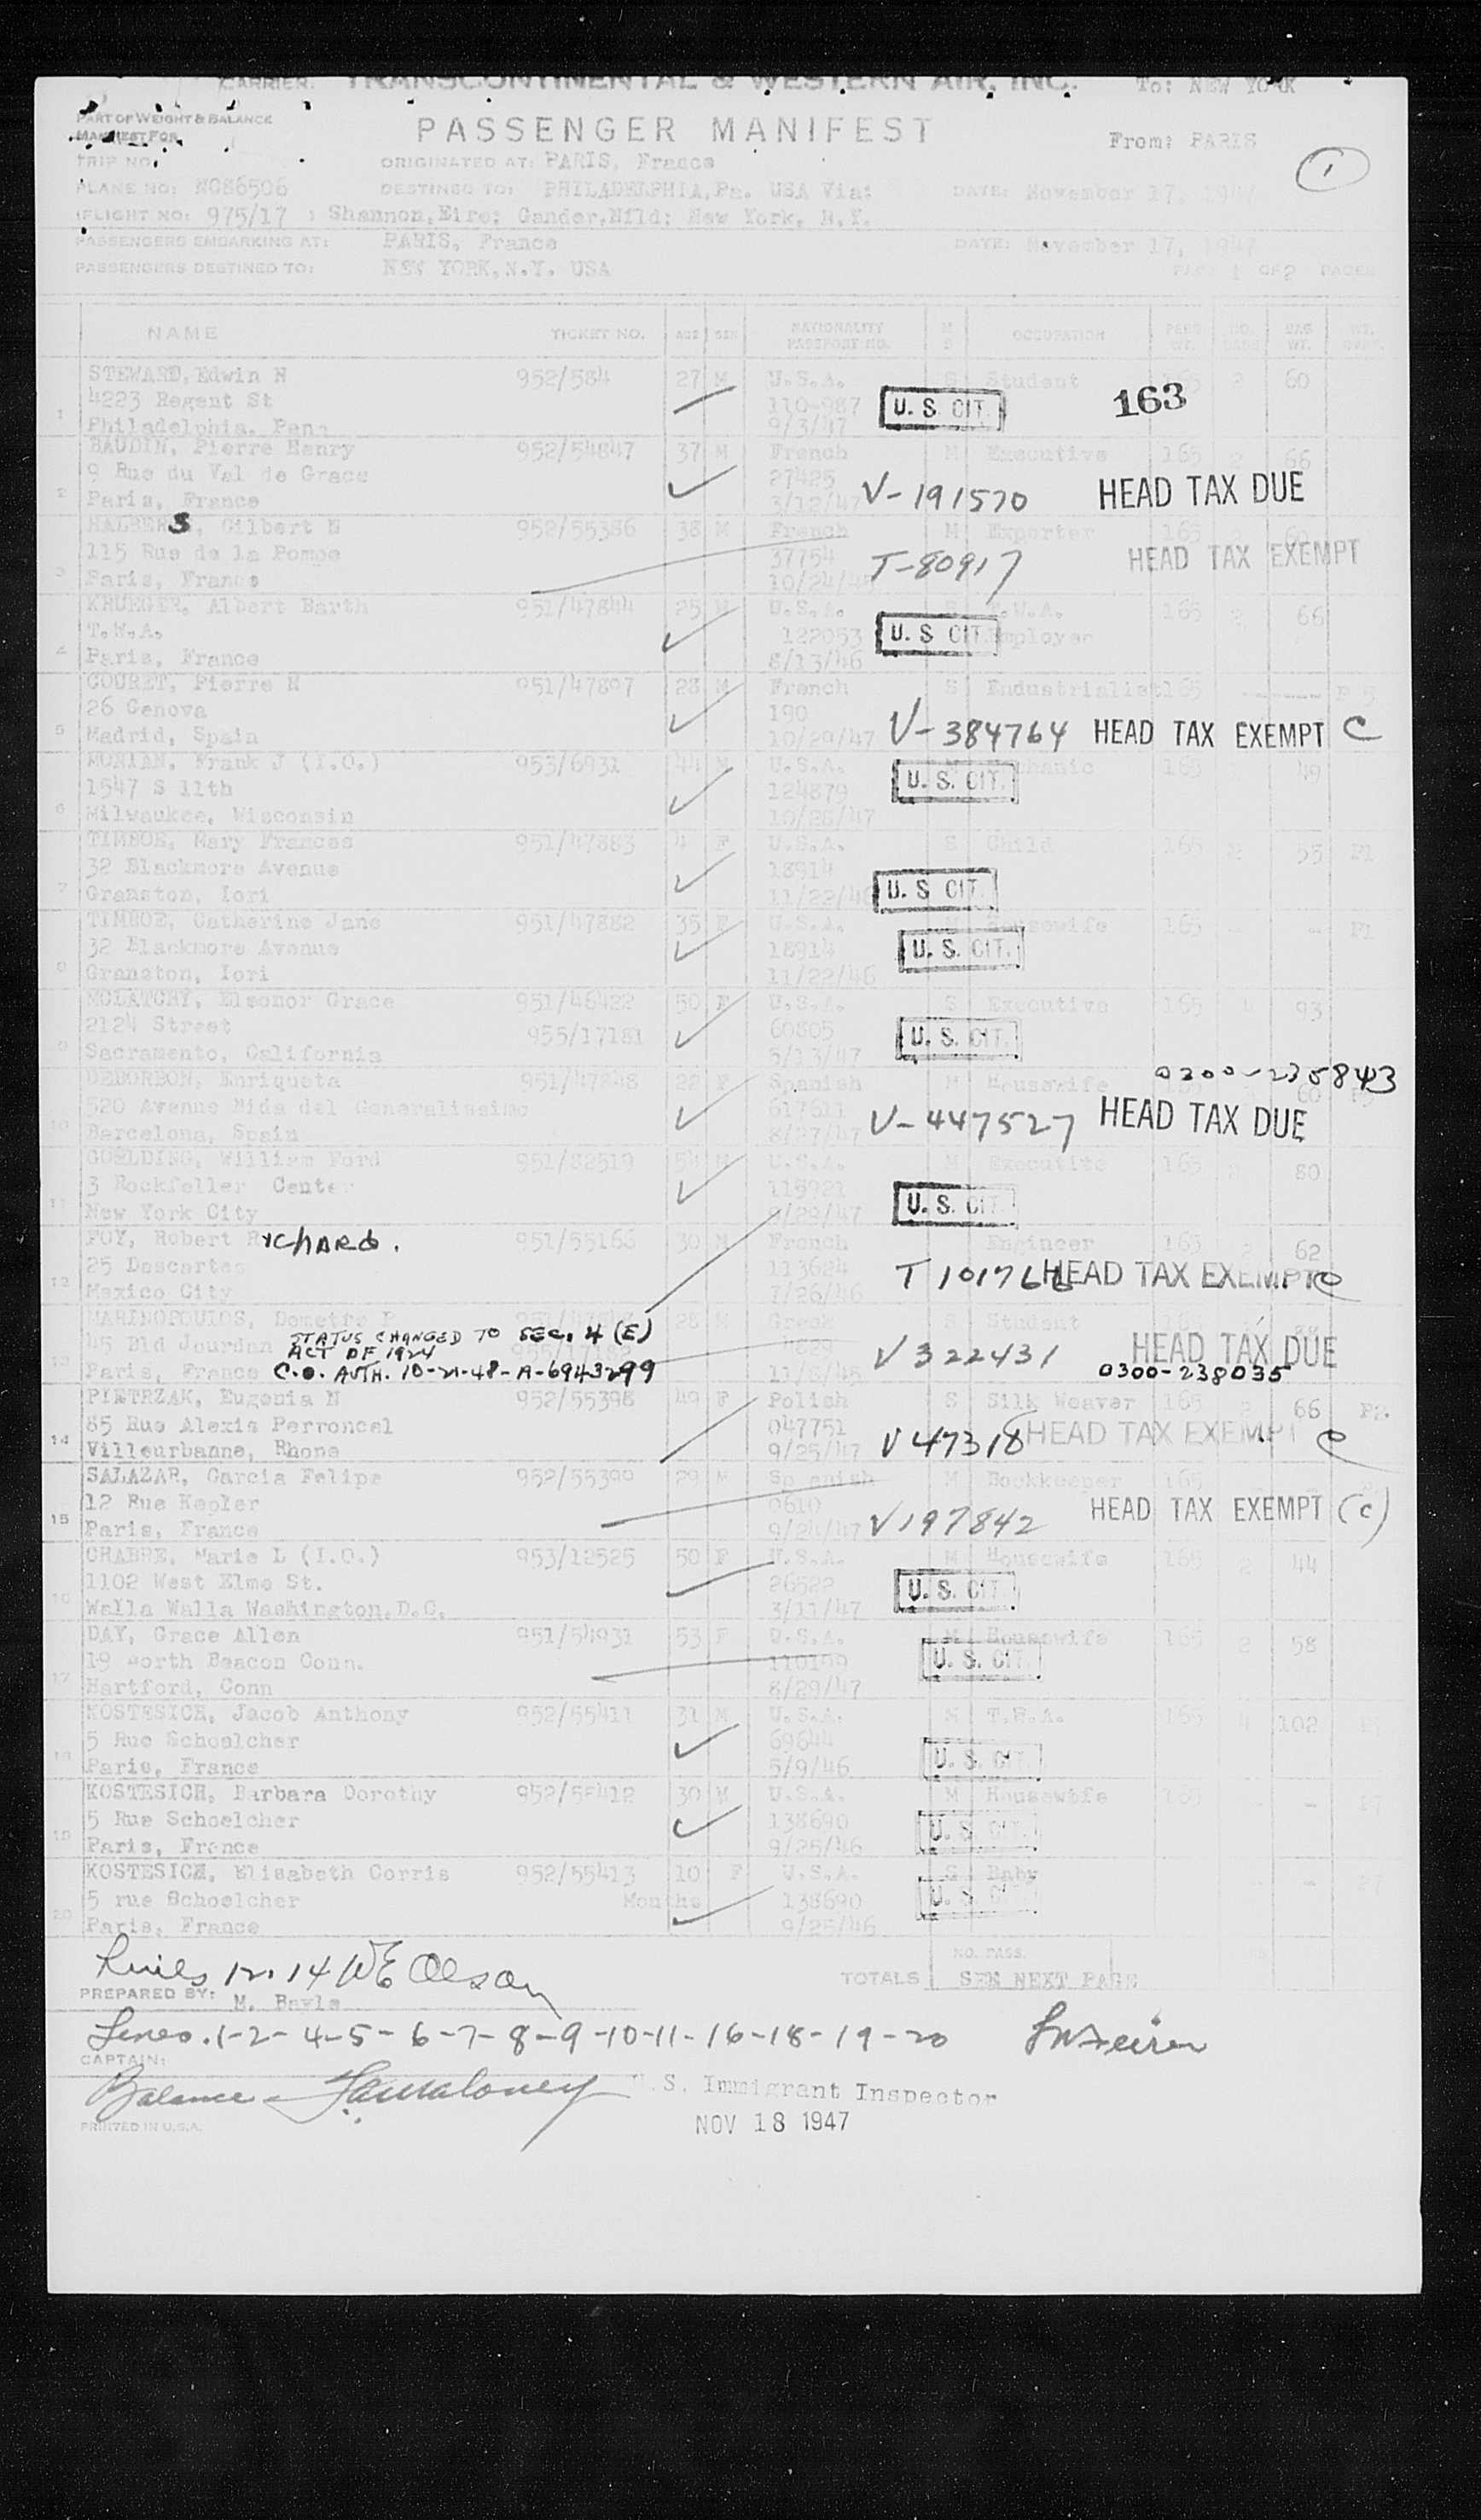 CARRIER: TRANSCONTINENTAL & WESTERN AIR, INC. To: NEW YORK
PART OF WEIGHT & BALANCE
MANIFEST FOR
PASSENGER MANIFEST From: PARIS
1
TRIP NO. ORIGINATED AT: PARIS, France
PLANE NO: NC86506 DESTINED TO: PHILADELPHIA, Pa. USA Via: DATE: November 17, 1947
(FLIGHT NO: 975/17 ) Shannon, Eire; Gander, Nfld; New York, N.Y.
PASSENGERS EMBARKING AT: PARIS, France DATE: November 17, 1947
PASSENGERS DESTINED TO: NEW YORK, N.Y. USA PAGE 1 OF 2 PAGES
NAME TICKET NO. AGE SEX NATIONALITY PASSPORT NO. M S OCCUPATION PASS WT. NO. BAGS BAG WT.
STEWARD, Edwin N 952/584 27 M U.S.A. S Student 165 2 60
4223 Regent St 110-987 U. S. CIT. 163
1 Philadelphia, Penn 9/3/47
BAUDIN, Pierre Henry 952/54847 37 M French M Executive 165 2 66
9 Rue du Val de Grace 27425
2 Paris, France 3/12/47 V-191570 HEAD TAX DUE
HALBERS, Gilbert N 952/55386 38 M French M Exporter 165
115 Rue de la Pompe 37754
3 Paris, France 10/24/45 T-80917 HEAD TAX EXEMPT
KRUEGER, Albert Barth 951/47844 25 M U.S.A. S T.W.A. 165 2 66
T.W.A. 122053 U. S CIT Employee
4 Paris, France 8/13/46
GOURET, Pierre N 951/47807 28 M French S Endustrialist 165
26 Genova 190
5 Madrid, Spain 10/29/47 V-384764 HEAD TAX EXEMPT C
MORIAN, Frank J (I.O.) 953/6931 44 M U.S.A. Mechanic 165 49
1547 S 11th 124879 U. S. CIT.
6 Milwaukee, Wisconsin 10/28/47
TIMBOE, Mary Frances 951/47883 4 F U.S.A. S Child 165 2 55 F1
32 Blackmore Avenue 18914
7 Granston, Iori 11/22/46 U. S CIT.
TIMBOE, Catherine Jane 951/47882 35 F U.S.A. Housewife 165 - - F1
32 Blackmore Avenue 18914 U. S. CIT.
8 Granston, Iori 11/22/46
MCLATCHY, Eleonor Grace 951/46422 50 F U.S.A. S Executive 165 4 93
2124 Street 955/17181 60805 U. S. CIT.
9 Sacramento, California 5/13/47
DEBORBON, Enriqueta 951/47848 22 F Spanish M Housewife 0300-235843
520 Avenue Mida del Generalissimo 617611 60
10 Barcelona, Spain 8/27/47 V-447527 HEAD TAX DUE
GOELDING, William Ford 951/82519 54 M U.S.A. M Executite 165 80
3 Rockfeller Center 115921
11 New York City 8/29/47 U. S. CIT
FOY, Robert Richard. 951/55166 30 M French Engineer 165 62
25 Descartes 113624 T 101766 HEAD TAX EXEMPT C
12 Mexico City 7/26/46
MARINOPOULOS, Demetre P 28 Greek S Student
STATUS CHANGED TO SEC. 4 (E)
45 Bld Jourdan ACT OF 1924 V 322431 HEAD TAX DUE
13 Paris, France C.O. AUTH. 10-21-48-A-6943299 11/8/45 0300-238035
PIETRZAK, Eugenia N 952/55398 49 F Polish S Silk Weaver 165 66 F2.
85 Rue Alexis Perroncel 047751
14 Villeurbanne, Rhone 9/25/47 V 47318 HEAD TAX EXEMPT C
SALAZAR, Garcia Felipe 952/55390 29 M Spanish M Bookkeeper 165
12 Rue Kepler 0610
15 Paris, France 9/24/47 V 197842 HEAD TAX EXEMPT (C)
CHABRE, Marie L (I.O.) 953/12525 50 F U.S.A. M Housewife 165 2 44
1102 West Elmo St. 26522 U. S. CIT
16 Walla Walla Washington, D.C. 3/11/47
DAY, Grace Allen 951/54931 53 F U.S.A. M Housewife 165 2 58
19 North Beacon Conn. 110199 U. S. CIT
17 Hartford, Conn 8/29/47
KOSTESICH, Jacob Anthony 952/55411 31 M U.S.A. M T.W.A. 165 4 102
5 Rue Schoelcher 69644
18 Paris, France 5/9/46 U. S. CIT
KOSTESICH, Barbara Dorothy 952/55412 30 M U.S.A. M Housewife 165 -
5 Rue Schoelcher 138690 U. S. CIT
19 Paris, France 9/25/46
KOSTESICH, Elisabeth Corris 952/55413 10 F U.S.A. S Baby - -
5 rue Schoelcher Months 138690 U. S.
20 Paris, France 9/25/46
Lines 12. 14 WE Olson
NO. PASS.
TOTALS SEE NEXT PAGE
PREPARED BY: M. Bayle
Lines. 1-2-4-5-6-7-8-9-10-11-16-18-19-20
CAPTAIN:
Balance - Maloney U.S. Immigrant Inspector
PRINTED IN U.S.A. NOV 18 1947